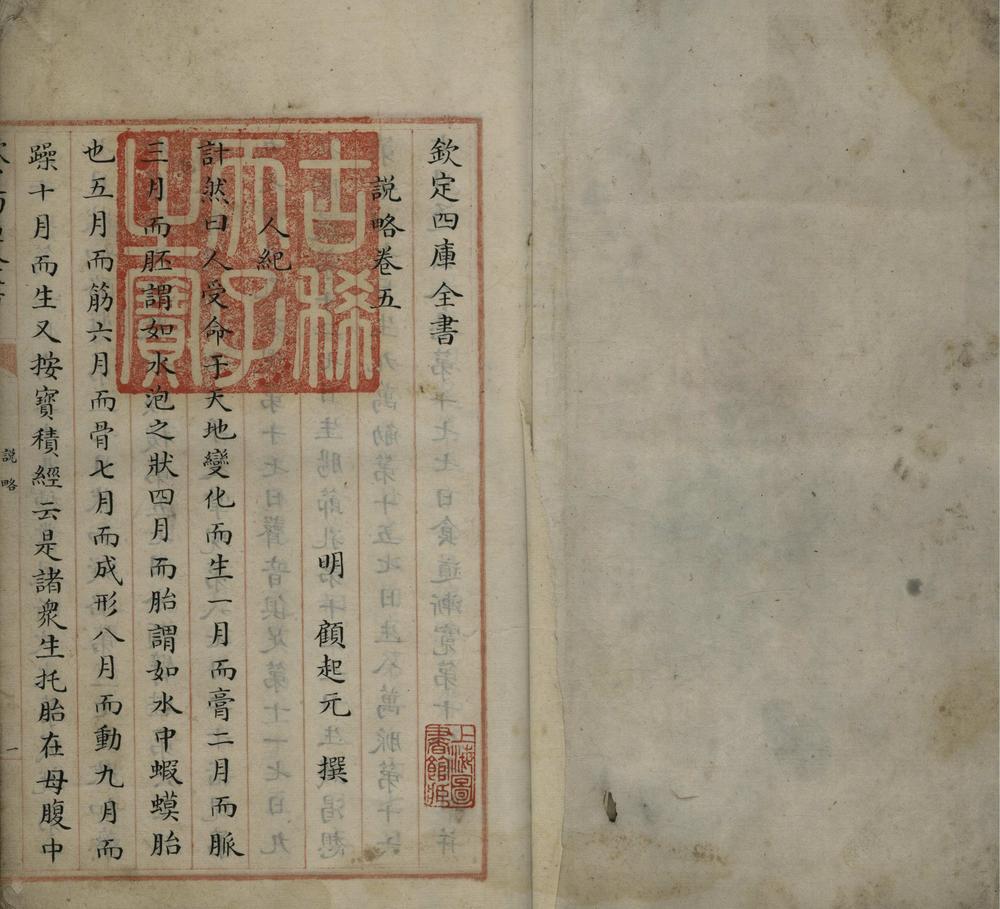 欽定四庫全書
説略卷五
明 顧起元 撰
人紀
計然曰人受命于天地變化而生一月而膏二月而脈
三月而胚謂如水泡之狀四月而胎謂如水中蝦蟆胎
也五月而筋六月而骨七月而成形八月而動九月而
躁十月而生又按寶積經云是諸衆生托胎在母腹中
説略
一
古稀天子之寶
上海圖書館藏